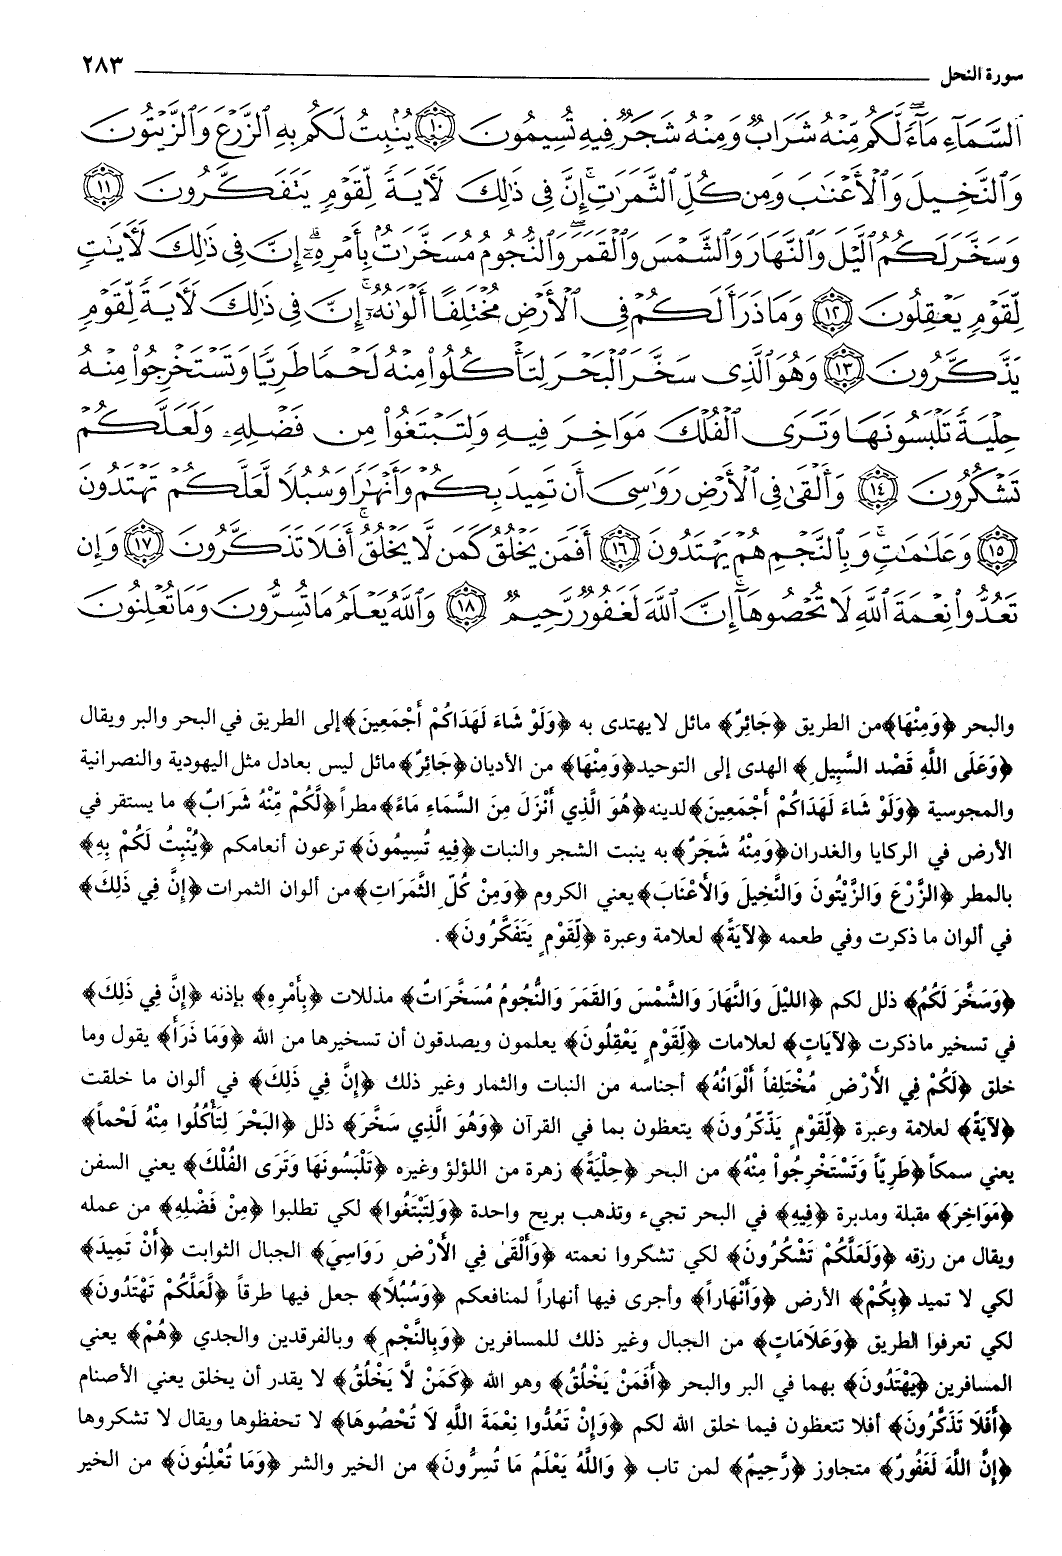 سورة النحل ٢٨٣
ٱلسَّمَآءِ مَآءً لَّكُم مِّنْهُ شَرَابٌ وَمِنْهُ شَجَرٌ فِيهِ تُسِيمُونَ ١٠ يُنۢبِتُ لَكُم بِهِ ٱلزَّرْعَ وَٱلزَّيْتُونَ
وَٱلنَّخِيلَ وَٱلْأَعْنَٰبَ وَمِن كُلِّ ٱلثَّمَرَٰتِ إِنَّ فِى ذَٰلِكَ لَآيَةً لِّقَوْمٍ يَتَفَكَّرُونَ ١١
وَسَخَّرَ لَكُمُ ٱلَّيْلَ وَٱلنَّهَارَ وَٱلشَّمْسَ وَٱلْقَمَرَ وَٱلنُّجُومُ مُسَخَّرَٰتٌۢ بِأَمْرِهِۦٓ إِنَّ فِى ذَٰلِكَ لَآيَٰتٍ
لِّقَوْمٍ يَعْقِلُونَ ١٢ وَمَا ذَرَأَ لَكُمْ فِى ٱلْأَرْضِ مُخْتَلِفًا أَلْوَٰنُهُۥٓ إِنَّ فِى ذَٰلِكَ لَآيَةً لِّقَوْمٍ
يَذَّكَّرُونَ ١٣ وَهُوَ ٱلَّذِى سَخَّرَ ٱلْبَحْرَ لِتَأْكُلُوا۟ مِنْهُ لَحْمًا طَرِيًّا وَتَسْتَخْرِجُوا۟ مِنْهُ
حِلْيَةً تَلْبَسُونَهَا وَتَرَى ٱلْفُلْكَ مَوَاخِرَ فِيهِ وَلِتَبْتَغُوا۟ مِن فَضْلِهِۦ وَلَعَلَّكُمْ
تَشْكُرُونَ ١٤ وَأَلْقَىٰ فِى ٱلْأَرْضِ رَوَٰسِىَ أَن تَمِيدَ بِكُمْ وَأَنْهَٰرًا وَسُبُلًا لَّعَلَّكُمْ تَهْتَدُونَ
١٥ وَعَلَٰمَٰتٍ وَبِٱلنَّجْمِ هُمْ يَهْتَدُونَ ١٦ أَفَمَن يَخْلُقُ كَمَن لَّا يَخْلُقُ أَفَلَا تَذَكَّرُونَ ١٧ وَإِن
تَعُدُّوا۟ نِعْمَةَ ٱللَّهِ لَا تُحْصُوهَآ إِنَّ ٱللَّهَ لَغَفُورٌ رَّحِيمٌ ١٨ وَٱللَّهُ يَعْلَمُ مَا تُسِرُّونَ وَمَا تُعْلِنُونَ
والبحر ﴿وَمِنْهَا﴾من الطريق ﴿جَائِرٌ﴾ مائل لا يهتدى به ﴿وَلَوْ شَاءَ لَهَدَاكُمْ أَجْمَعِينَ﴾إلى الطريق في البحر والبر ويقال
﴿وَعَلَى اللَّهِ قَصْد السَّبِيلِ﴾ الهدى إلى التوحيد﴿وَمِنْهَا﴾ من الأديان﴿جَائِرٌ﴾مائل ليس بعادل مثل اليهودية والنصرانية
والمجوسية ﴿وَلَوْ شَاءَ لَهَدَاكُمْ أَجْمَعِينَ﴾لدينه﴿هُوَ الَّذِي أَنْزَلَ مِنَ السَّمَاءِ مَاءً﴾مطراً﴿لَّكُمْ مِّنْهُ شَرَابٌ﴾ ما يستقر في
الأرض في الركايا والغدران﴿وَمِنْهُ شَجَرٌ﴾به ينبت الشجر والنبات﴿فِيهِ تُسِيمُونَ﴾ترعون أنعامكم ﴿يُنْبِتُ لَكُمْ بِهِ﴾
بالمطر ﴿الزَّرْعَ وَالزَّيْتُونَ وَالنَّخِيلَ وَالأَعْنَابَ﴾يعني الكروم ﴿وَمِنْ كُلِّ الثَّمَرَاتِ﴾من ألوان الثمرات﴿إِنَّ فِي ذَلِكَ﴾
في ألوان ما ذكرت وفي طعمه ﴿لآيَةً﴾ لعلامة وعبرة ﴿لِّقَوْمٍ يَتَفَكَّرُونَ﴾.
﴿وَسَخَّرَ لَكُمُ﴾ ذلل لكم ﴿الليْلَ وَالنَّهَارَ وَالشَّمْسَ وَالقَمَرَ وَالنُّجُومُ مُسَخَّرَاتٌ﴾ مذللات ﴿بِأَمْرِهِ﴾ بإذنه ﴿إِنَّ فِي ذَلِكَ﴾
في تسخير ما ذكرت ﴿لآيَاتٍ﴾ لعلامات ﴿لِّقَوْمٍ يَعْقِلُونَ﴾ يعلمون ويصدقون أن تسخيرها من الله ﴿وَمَا ذَرَأَ﴾ يقول وما
خلق ﴿لَكُمْ فِي الأَرْضِ مُخْتَلِفاً أَلْوَانُهُ﴾ أجناسه من النبات والثمار وغير ذلك ﴿إِنَّ فِي ذَلِكَ﴾ في ألوان ما خلقت
﴿لآيَةً﴾ لعلامة وعبرة ﴿لِّقَوْمٍ يَذَّكَّرُونَ﴾ يتعظون بما في القرآن ﴿وَهُوَ الَّذِي سَخَّرَ﴾ ذلل ﴿البَحْرَ لِتَأْكُلُوا مِنْهُ لَحْماً﴾
يعني سمكاً﴿طَرِيّاً وَتَسْتَخْرِجُواْ مِنْهُ﴾ من البحر ﴿حِلْيَةً﴾ زهرة من اللؤلؤ وغيره ﴿تَلْبَسُونَهَا وَتَرَى الفُلْكَ﴾ يعني السفن
﴿مَوَاخِرَ﴾ مقبلة ومدبرة ﴿فِيهِ﴾ في البحر تجيء وتذهب بريح واحدة ﴿وَلِتَبْتَغُوا﴾ لكي تطلبوا ﴿مِنْ فَضْلِهِ﴾ من عمله
ويقال من رزقه ﴿وَلَعَلَّكُمْ تَشْكُرُونَ﴾ لكي تشكروا نعمته ﴿وَأَلْقَىٰ فِي الأَرْضِ رَوَاسِيَ﴾ الجبال الثوابت ﴿أَنْ تَمِيدَ﴾
لكي لا تميد ﴿بِكُمْ﴾ الأرض ﴿وَأَنْهَاراً﴾ وأجرى فيها أنهاراً لمنافعكم ﴿وَسُبُلاً﴾ جعل فيها طرقاً ﴿لَّعَلَّكُمْ تَهْتَدُونَ﴾
لكي تعرفوا الطريق ﴿وَعَلَامَاتٍ﴾ من الجبال وغير ذلك للمسافرين ﴿وَبِالنَّجْمِ﴾ وبالفرقدين والجدي ﴿هُمْ﴾ يعني
المسافرين ﴿يَهْتَدُونَ﴾ بهما في البر والبحر ﴿أَفَمَنْ يَخْلُقُ﴾ وهو الله ﴿كَمَنْ لَّا يَخْلُقُ﴾ لا يقدر أن يخلق يعني الأصنام
﴿أَفَلَا تَذَكَّرُونَ﴾ أفلا تتعظون فيما خلق الله لكم ﴿وَإِنْ تَعُدُّوا نِعْمَةَ اللَّهِ لَا تُحْصُوهَا﴾ لا تحفظوها ويقال لا تشكروها
﴿إِنَّ اللَّهَ لَغَفُورٌ﴾ متجاوز ﴿رَّحِيمٌ﴾ لمن تاب ﴿ وَاللَّهُ يَعْلَمُ مَا تُسِرُّونَ﴾ من الخير والشر ﴿وَمَا تُعْلِنُونَ﴾ من الخير